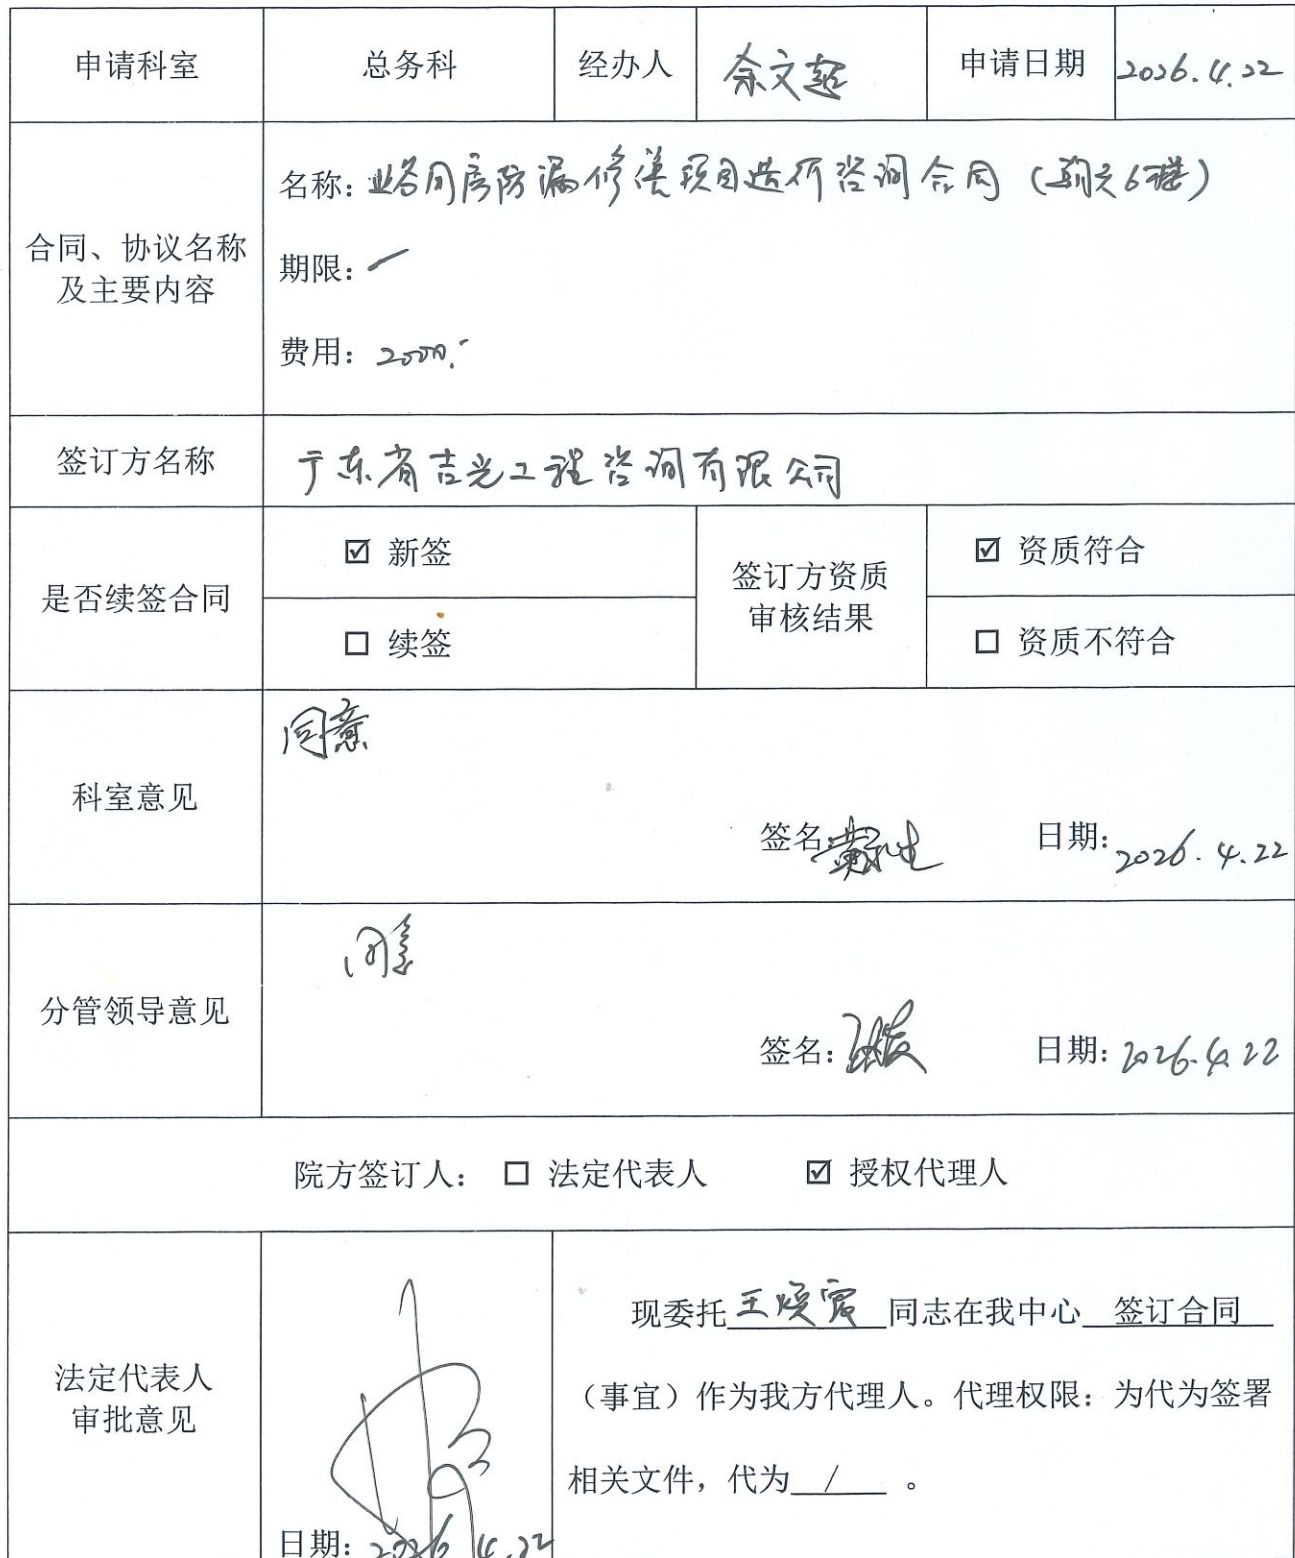 申请科室 总务科 经办人 余文超 申请日期 2026.4.22
合同、协议名称
及主要内容
名称：业务用房防漏修缮项目造价咨询合同（朝天6楼）
期限：/
费用：2000.-
签订方名称 广东省吉光工程咨询有限公司
是否续签合同
☑ 新签
□ 续签
签订方资质
审核结果
☑ 资质符合
□ 资质不符合
科室意见
同意
签名: 日期：2026.4.22
分管领导意见
同意
签名： 日期：2026.4.22
院方签订人： □ 法定代表人 ☑ 授权代理人
法定代表人
审批意见
日期：2026.4.22
现委托王焕霞同志在我中心 签订合同
（事宜）作为我方代理人。代理权限：为代为签署
相关文件，代为 / 。